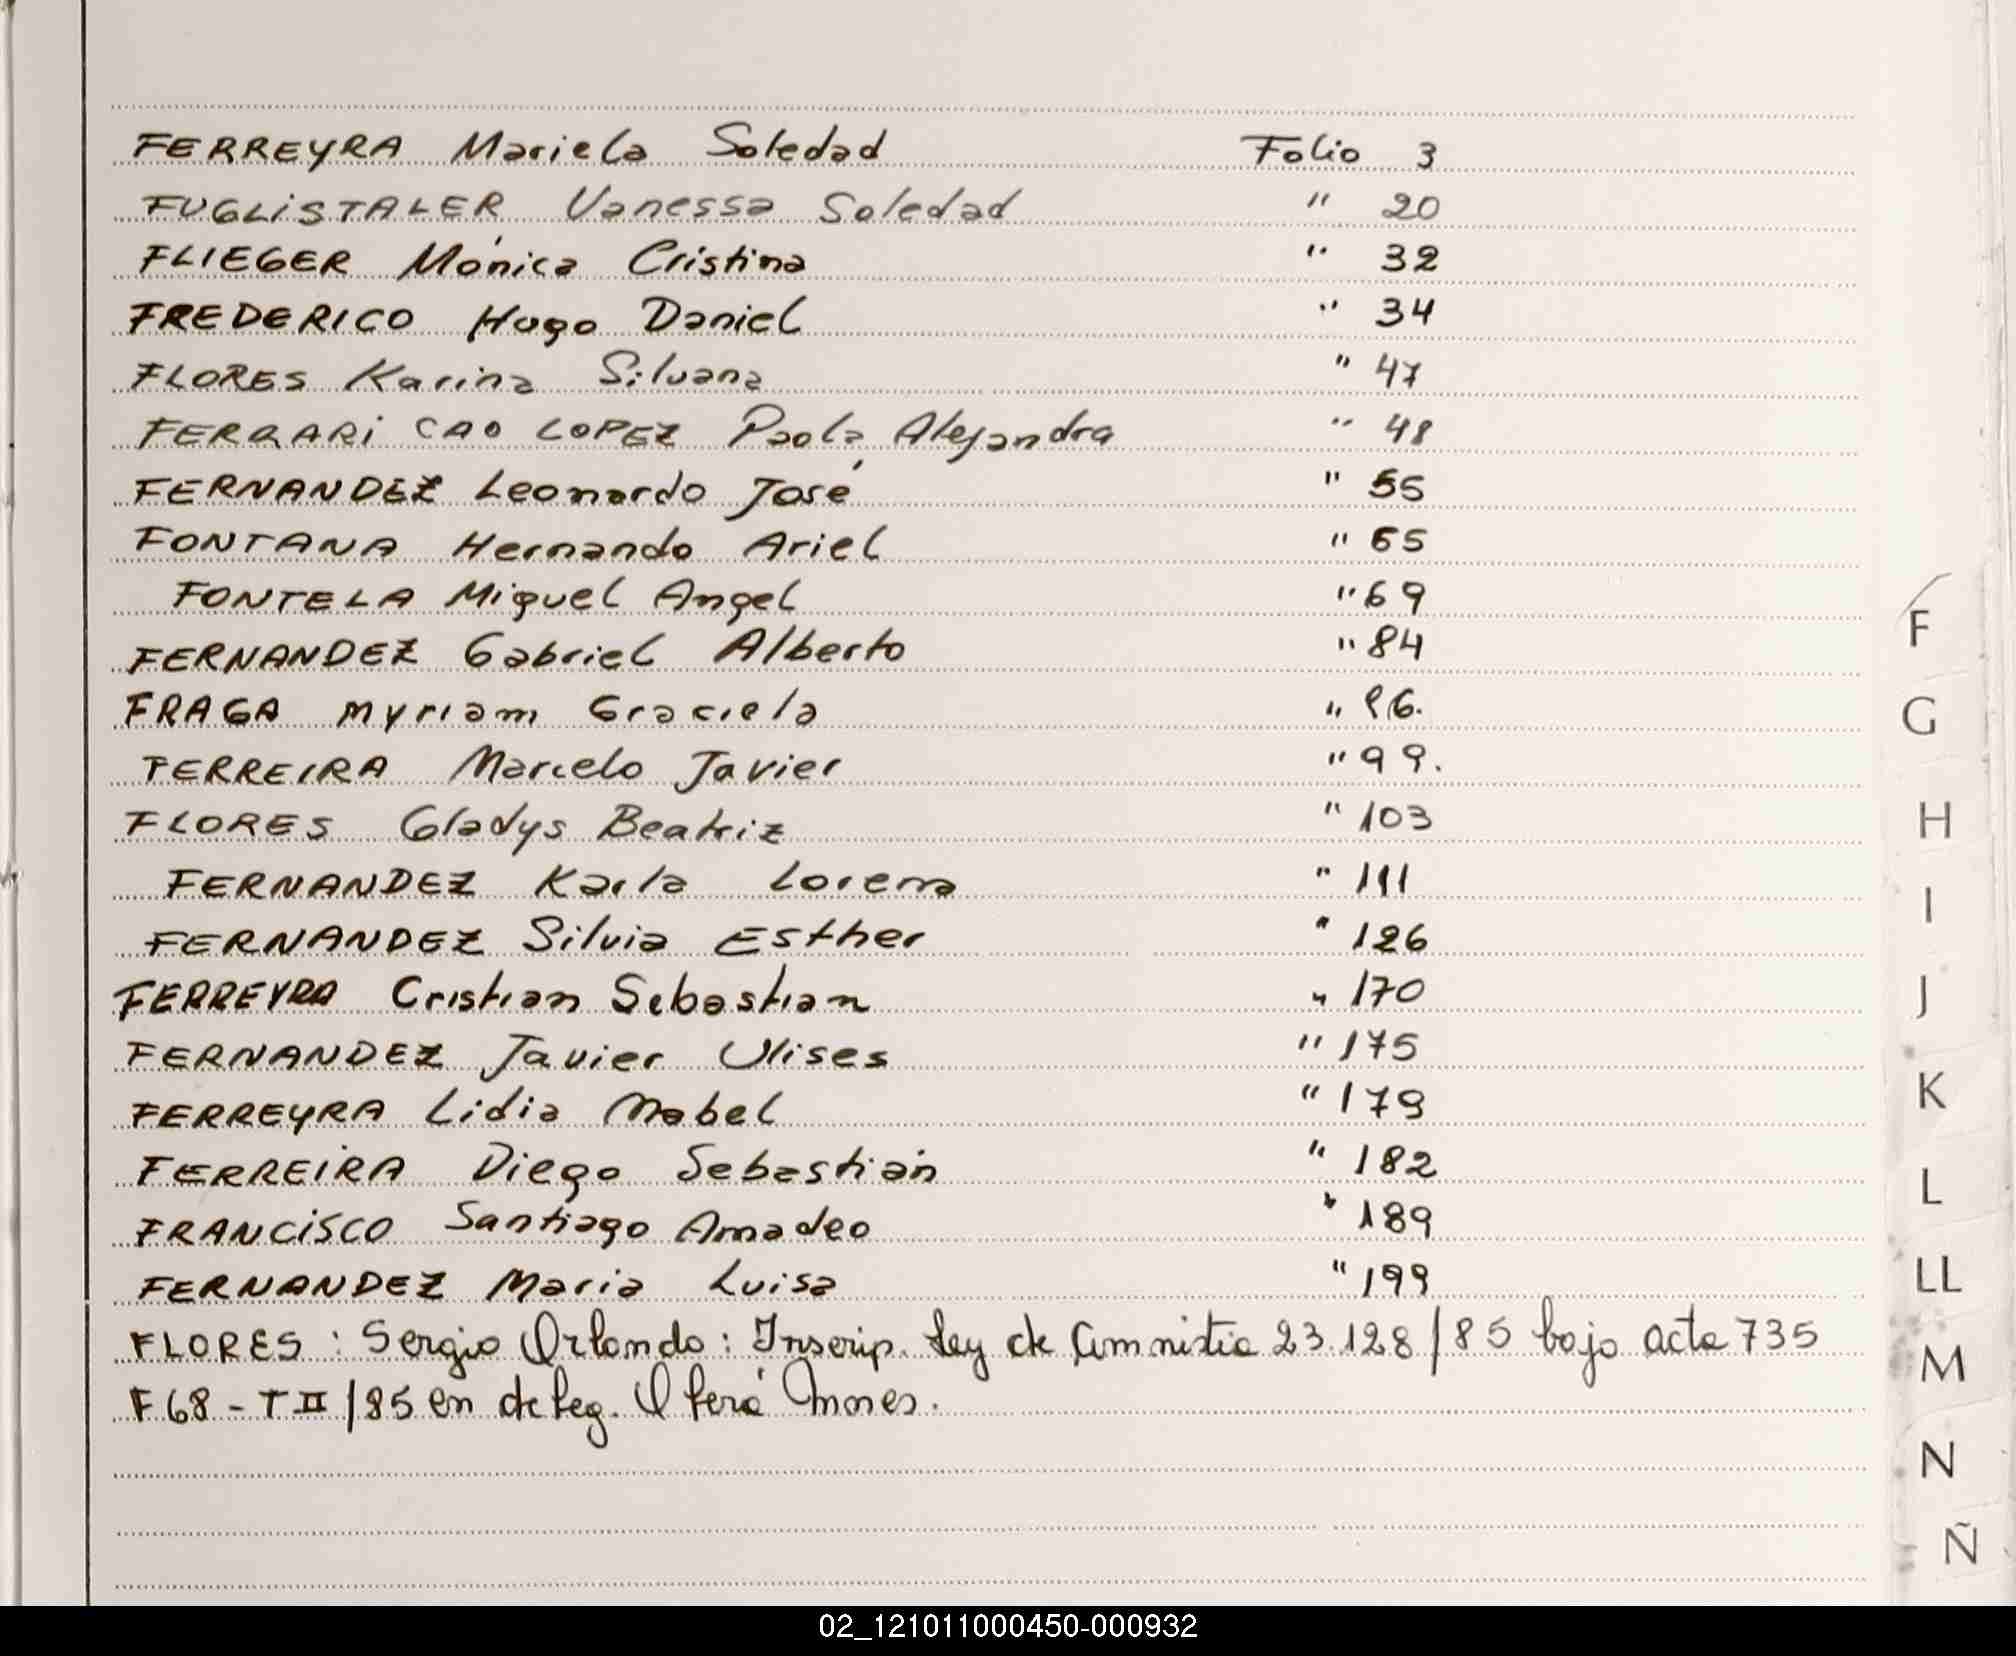 FERREYRA Mariela Soledad Folio 3
FUGLISTALER Vanessa Soledad " 20
FLIEGER Mónica Cristina " 32
FREDERICO Hugo Daniel " 34
FLORES Karina Silvana " 47
FERRARI CAO LOPEZ Paola Alejandra " 48
FERNANDEZ Leonardo José " 55
FONTANA Hernando Ariel " 65
FONTELA Miguel Angel " 69
FERNANDEZ Gabriel Alberto " 84
FRAGA Myriam Graciela " 96.
FERREIRA Marcelo Javier " 99.
FLORES Gladys Beatriz " 103
FERNANDEZ Karla Lorena " 111
FERNANDEZ Silvia Esther " 126
FERREYRA Cristian Sebastian " 170
FERNANDEZ Javier Ulises " 175
FERREYRA Lidia Mabel " 179
FERREIRA Diego Sebastián " 182
FRANCISCO Santiago Amadeo " 189
FERNANDEZ Maria Luisa " 199
FLORES : Sergio Orlando : Inscrip. Ley de Amnistia 23.128/85 bajo acta 735
F 68 - T II /85 en deleg.
F
G
H
I
J
K
L
LL
M
N
Ñ
02_121011000450-000932